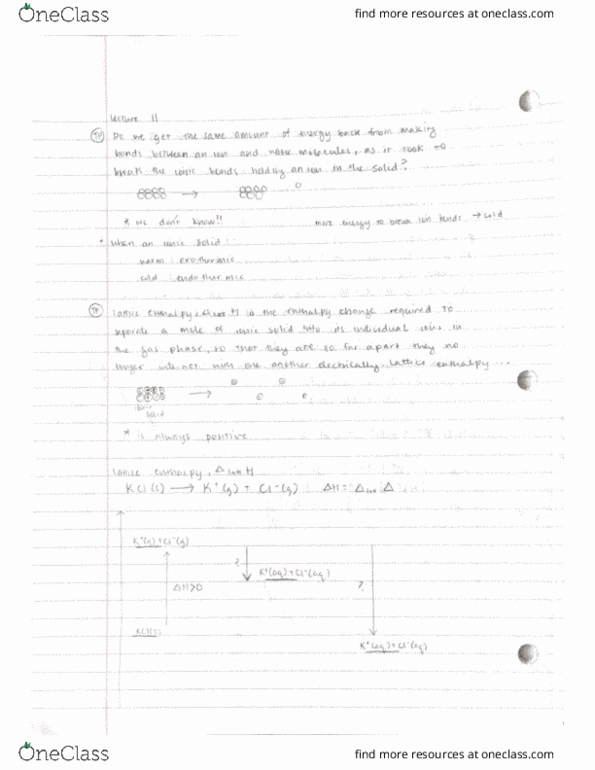 OneClass
find more resources at oneclass.com
Lecture 11
Do we get the same amount of energy back from making
bonds between an ion and water molecules, as it took to
break the ionic bonds holding an ion in the solid?
* we don't know!! more energy to break ion bonds → cold
* When an ionic solid:
warm: exothermic
cold: endothermic
Lattice enthalpy, H is the enthalpy change required to
separate a mole of ionic solid into its individual ions in
the gas phase, so that they are so far apart they no
longer interact with one another electrically. Lattice enthalpy ...
ionic
solid
* is always positive
Lattice enthalpy, Δlatt H
KCl(s) → K⁺(g) + Cl⁻(g) ΔH = Δlatt Δ
K⁺(g) + Cl⁻(g)
?
K⁺(aq) + Cl⁻(aq)
ΔH>0
?
KCl(s)
K⁺(aq) + Cl⁻(aq)
OneClass
find more resources at oneclass.com